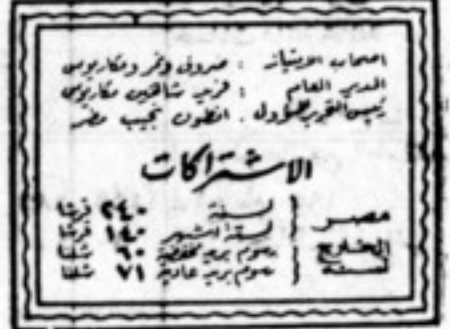 اصحاب الامتياز : صروف ونمر ومكاريوس
المدير العام : فريد شاهين مكاريوس
رئيس التحرير المسؤول . انطون نجيب مطر
الاشتراكات
مصر { لسنة ٢٤٠ قرشا
لستة اشهر ١٤٠ قرشا
الخارج لسنة { رسوم بريد مخفضة ٦٠ شلنا
رسوم بريد عادية ٧١ شلنا